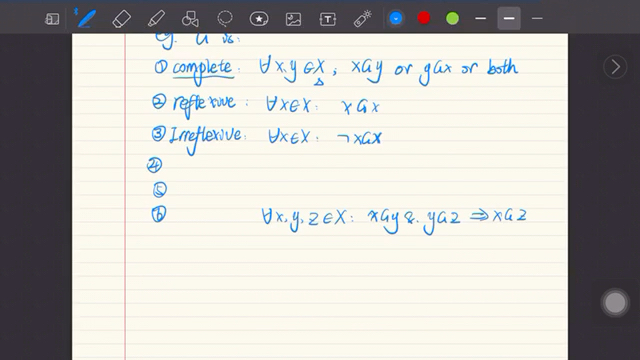 eg. G is:
① complete: ∀x,y∈X; xGy or yGx or both
② reflexive: ∀x∈X: xGx
③ Irreflexive: ∀x∈X: ¬xGx
④
⑤
⑥ ∀x,y,z∈X: xGy & yGz ⇒ xGz